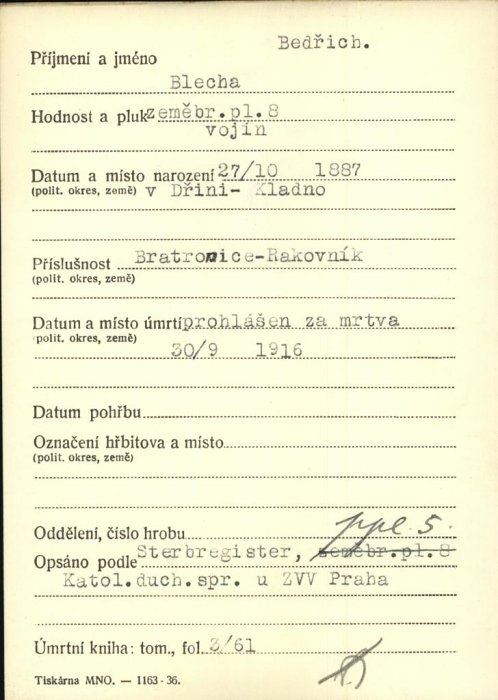 Bedřich.
Příjmení a jméno
Blecha
Hodnost a pluk zeměbr.pl.8
vojín
Datum a místo narození 27/10 1887
(polit. okres, země) v Dřini- Kladno
Příslušnost Bratronice-Rakovník
(polit. okres, země)
Datum a místo úmrtí prohlášen za mrtva
(polit. okres, země)
30/9 1916
Datum pohřbu
Označení hřbitova a místo
(polit. okres, země)
Oddělení, číslo hrobu
ppl 5.
Opsáno podle Sterbregister, zeměbr.pl.8
Katol.duch.spr. u ZVV Praha
Úmrtní kniha: tom., fol. 3/61
Tiskárna MNO. — 1163-36.